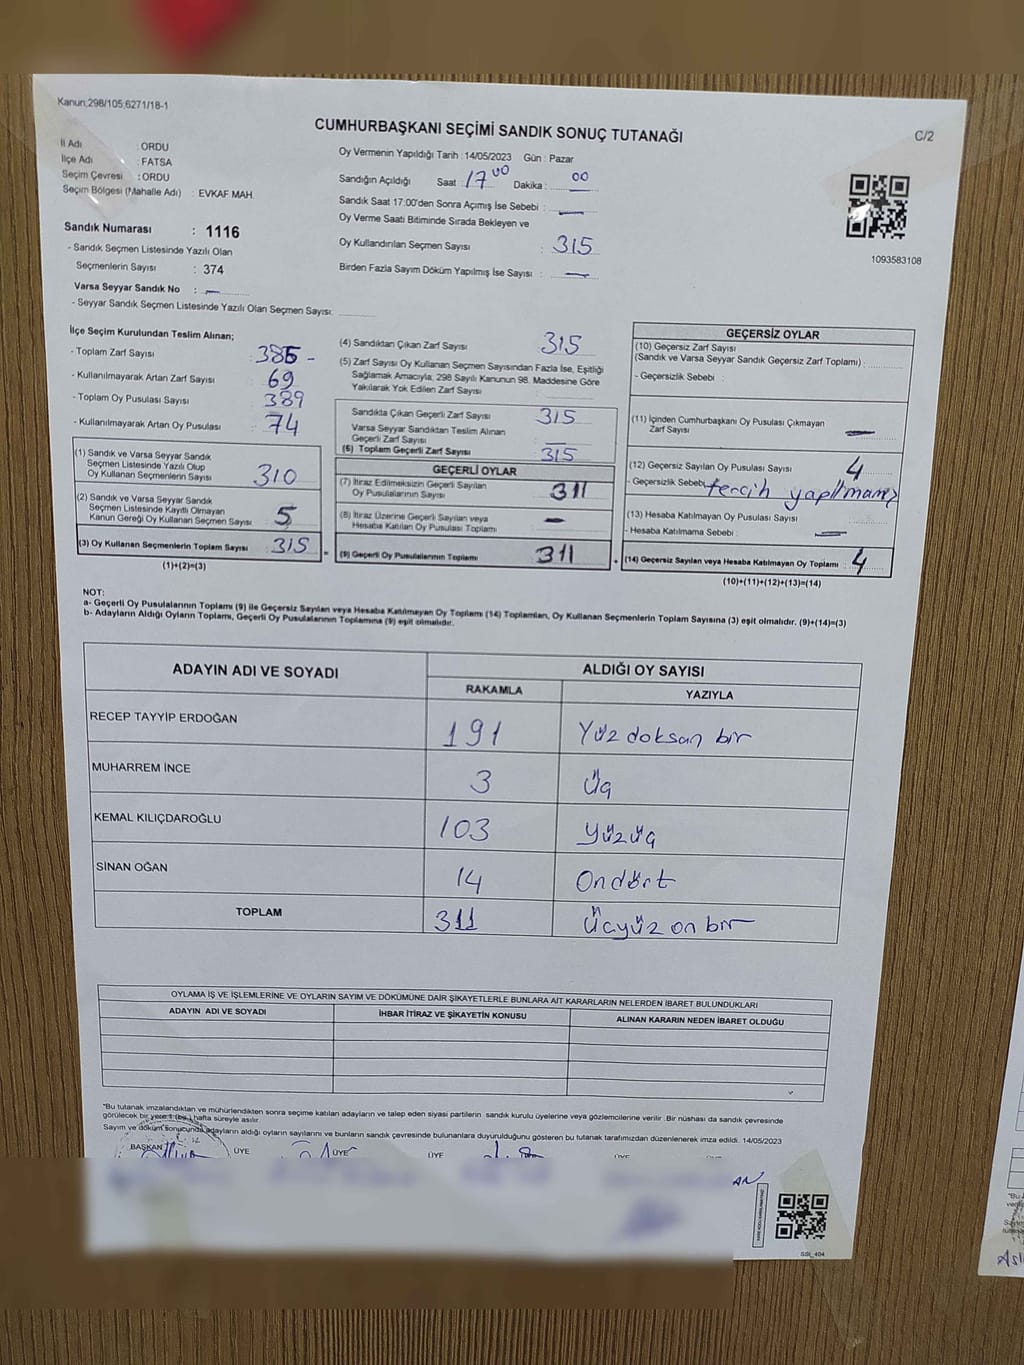 Kanun;298/105;6271/18-1
CUMHURBAŞKANI SEÇİMİ SANDIK SONUÇ TUTANAĞI
C/2
İl Adı : ORDU
İlçe Adı : FATSA
Seçim Çevresi : ORDU
Seçim Bölgesi (Mahalle Adı) : EVKAF MAH.
Sandık Numarası : 1116
- Sandık Seçmen Listesinde Yazılı Olan
Seçmenlerin Sayısı : 374
Varsa Seyyar Sandık No : —
- Seyyar Sandık Seçmen Listesinde Yazılı Olan Seçmen Sayısı:
Oy Vermenin Yapıldığı Tarih :14/05/2023 Gün : Pazar
Sandığın Açıldığı Saat 17 00 Dakika : 00
Sandık Saat 17:00'den Sonra Açımış İse Sebebi : —
Oy Verme Saati Bitiminde Sırada Bekleyen ve
Oy Kullandırılan Seçmen Sayısı : 315
Birden Fazla Sayım Döküm Yapılmış İse Sayısı : —
1093583108
İlçe Seçim Kurulundan Teslim Alınan;
- Toplam Zarf Sayısı : 385 -
- Kullanılmayarak Artan Zarf Sayısı : 69
- Toplam Oy Pusulası Sayısı : 389
- Kullanılmayarak Artan Oy Pusulası : 74
(1) Sandık ve Varsa Seyyar Sandık
Seçmen Listesinde Yazılı Olup
Oy Kullanan Seçmenlerin Sayısı 310
(2) Sandık ve Varsa Seyyar Sandık
Seçmen Listesinde Kayıtlı Olmayan
Kanun Gereği Oy Kullanan Seçmen Sayısı : 5
(3) Oy Kullanan Seçmenlerin Toplam Sayısı : 315
(1)+(2)=(3)
(4) Sandıktan Çıkan Zarf Sayısı : 315
(5) Zarf Sayısı Oy Kullanan Seçmen Sayısından Fazla İse, Eşitliği
Sağlamak Amacıyla, 298 Sayılı Kanunun 98. Maddesine Göre
Yakılarak Yok Edilen Zarf Sayısı :
Sandıkta Çıkan Geçerli Zarf Sayısı : 315
Varsa Seyyar Sandıktan Teslim Alınan
Geçerli Zarf Sayısı : —
(6) Toplam Geçerli Zarf Sayısı : 315
GEÇERLİ OYLAR
(7) İtiraz Edilmeksizin Geçerli Sayılan
Oy Pusulalarının Sayısı : 311
(8) İtiraz Üzerine Geçerli Sayılan veya
Hesaba Katılan Oy Pusulası Toplamı : —
(9) Geçerli Oy Pusulalarının Toplamı : 311
GEÇERSİZ OYLAR
(10) Geçersiz Zarf Sayısı
(Sandık ve Varsa Seyyar Sandık Geçersiz Zarf Toplamı) :
- Geçersizlik Sebebi :
(11) İçinden Cumhurbaşkanı Oy Pusulası Çıkmayan
Zarf Sayısı : —
(12) Geçersiz Sayılan Oy Pusulası Sayısı : 4
- Geçersizlik Sebebi tercih yapılmamış
(13) Hesaba Katılmayan Oy Pusulası Sayısı
- Hesaba Katılmama Sebebi : —
(14) Geçersiz Sayılan veya Hesaba Katılmayan Oy Toplamı : 4
(10)+(11)+(12)+(13)=(14)
NOT:
a- Geçerli Oy Pusulalarının Toplamı (9) ile Geçersiz Sayılan veya Hesaba Katılmayan Oy Toplamı (14) Toplamları, Oy Kullanan Seçmenlerin Toplam Sayısına (3) eşit olmalıdır. (9)+(14)=(3)
b- Adayların Aldığı Oyların Toplamı, Geçerli Oy Pusulalarının Toplamına (9) eşit olmalıdır.
ADAYIN ADI VE SOYADI ALDIĞI OY SAYISI
RAKAMLA YAZIYLA
RECEP TAYYİP ERDOĞAN 191 Yüz doksan bir
MUHARREM İNCE 3 Üç
KEMAL KILIÇDAROĞLU 103 Yüzüç
SİNAN OĞAN 14 Ondört
TOPLAM 311 Üçyüz on bir
OYLAMA İŞ VE İŞLEMLERİNE VE OYLARIN SAYIM VE DÖKÜMÜNE DAİR ŞİKAYETLERLE BUNLARA AİT KARARLARIN NELERDEN İBARET BULUNDUKLARI
ADAYIN ADI VE SOYADI İHBAR İTİRAZ VE ŞİKAYETİN KONUSU ALINAN KARARIN NEDEN İBARET OLDUĞU
"Bu tutanak imzalandıktan ve mühürlendikten sonra seçime katılan adayların ve talep eden siyasi partilerin sandık kurulu üyelerine veya gözlemcilerine verilir. Bir nüshası da sandık çevresinde
görülecek bir yere 1 (bir) hafta süreyle asılır.
Sayım ve döküm sonucunda adayların aldığı oyların sayılarını ve bunların sandık çevresinde bulunanlara duyurulduğunu gösteren bu tutanak tarafımızdan düzenlenerek imza edildi. 14/05/2023
BAŞKAN ÜYE ÜYE ÜYE ÜYE ÜYE
AN
SSI_404
"Bu